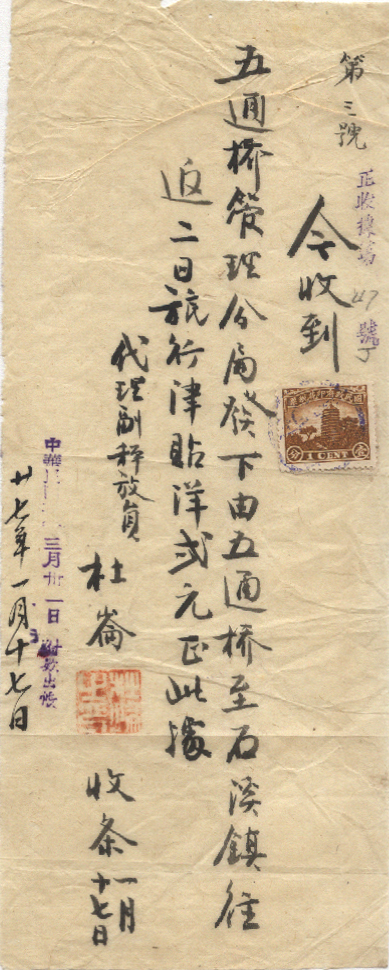 第三號
正收據第47號丁
今收到
國民政府印花税票
壹 1 CENT 分
五通橋管理分局發下由五通橋至石溪鎮往
返二日旅行津貼洋弍元正此據
代理副秤放員
杜崙
收条
一月
十七日
中華
三月卅一日付款出帳
廿七年一月十七日